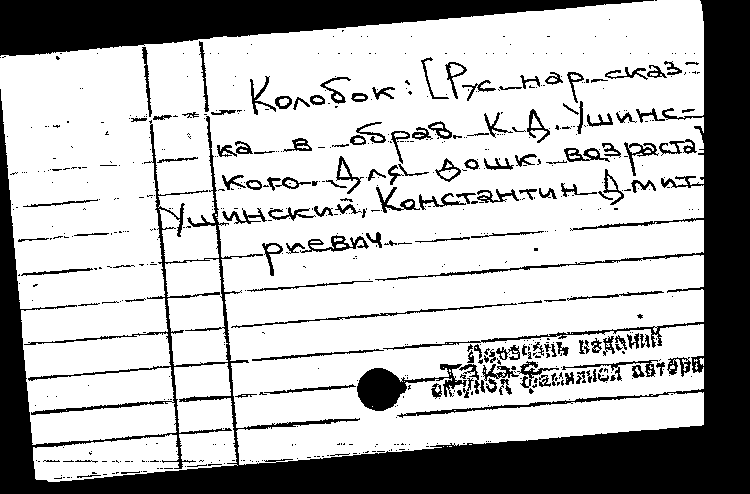 Колобок: [Рус. нар. сказ-
ка в обраб. К.Д. Ушинс-
кого. Для дошк. возраста]
Ушинский, Константин Дмит-
риевич.
Перечень изданий
также
см. под фамилией автора